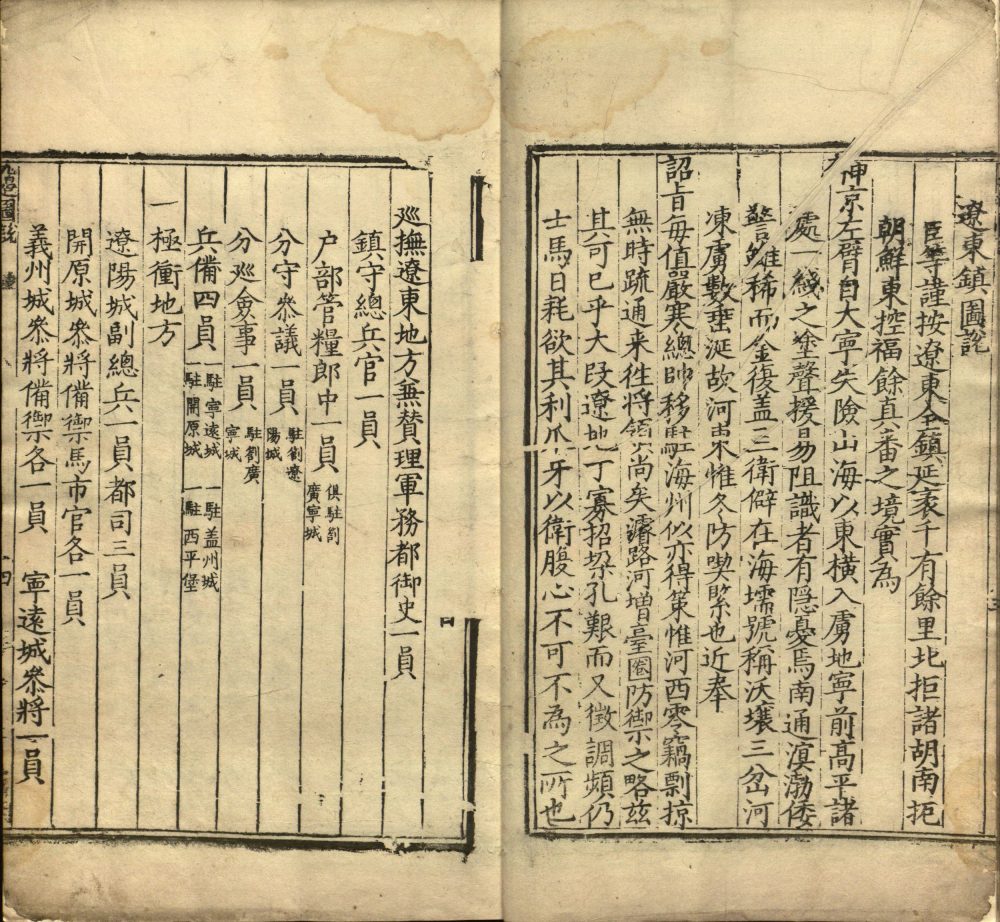 遼東鎮圖說
臣等謹按遼東全鎮延袤千有餘里北拒諸胡南拒
朝鮮東控福餘真番之境實為
神京左臂自大寧失險山海以東橫入虜地寧前高平諸
處一綫之塗聲援易阻識者有隱憂焉南通溟渤倭
警雖稀而金復盖三衛僻在海壖號稱沃壤三岔河
凍虜數垂涎故河東惟冬防喫緊也近奉
詔旨每值嚴寒總帥移駐海州似亦得策惟河西零竊剽掠
無時疏通来徃將領尚矣濬路河增臺圈防禦之略玆
其可已乎大段遼地丁寡招架孔艱而又徵調頻仍
士馬日耗欲其利爪牙以衛腹心不可不為之所也
廵撫遼東地方兼贊理軍務都御史一員
鎮守總兵官一員
户部管糧郎中一員 俱駐劄廣寧城
分守叅議一員 駐劄遼陽城
分廵僉事一員 駐劄廣寧城
兵備四員 一駐寧遠城 一駐開原城 一駐盖州城 一駐西平堡
一極衝地方
遼陽城副總兵一員都司三員
開原城叅將備禦馬市官各一員
義州城叅將備禦各一員 寧遠城叅將一員
九邊圖說